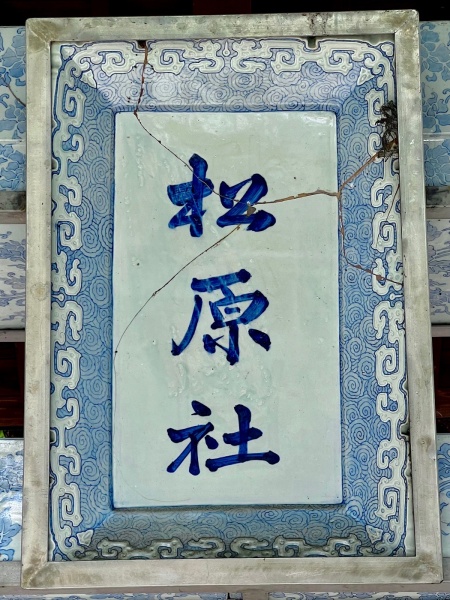 松原社